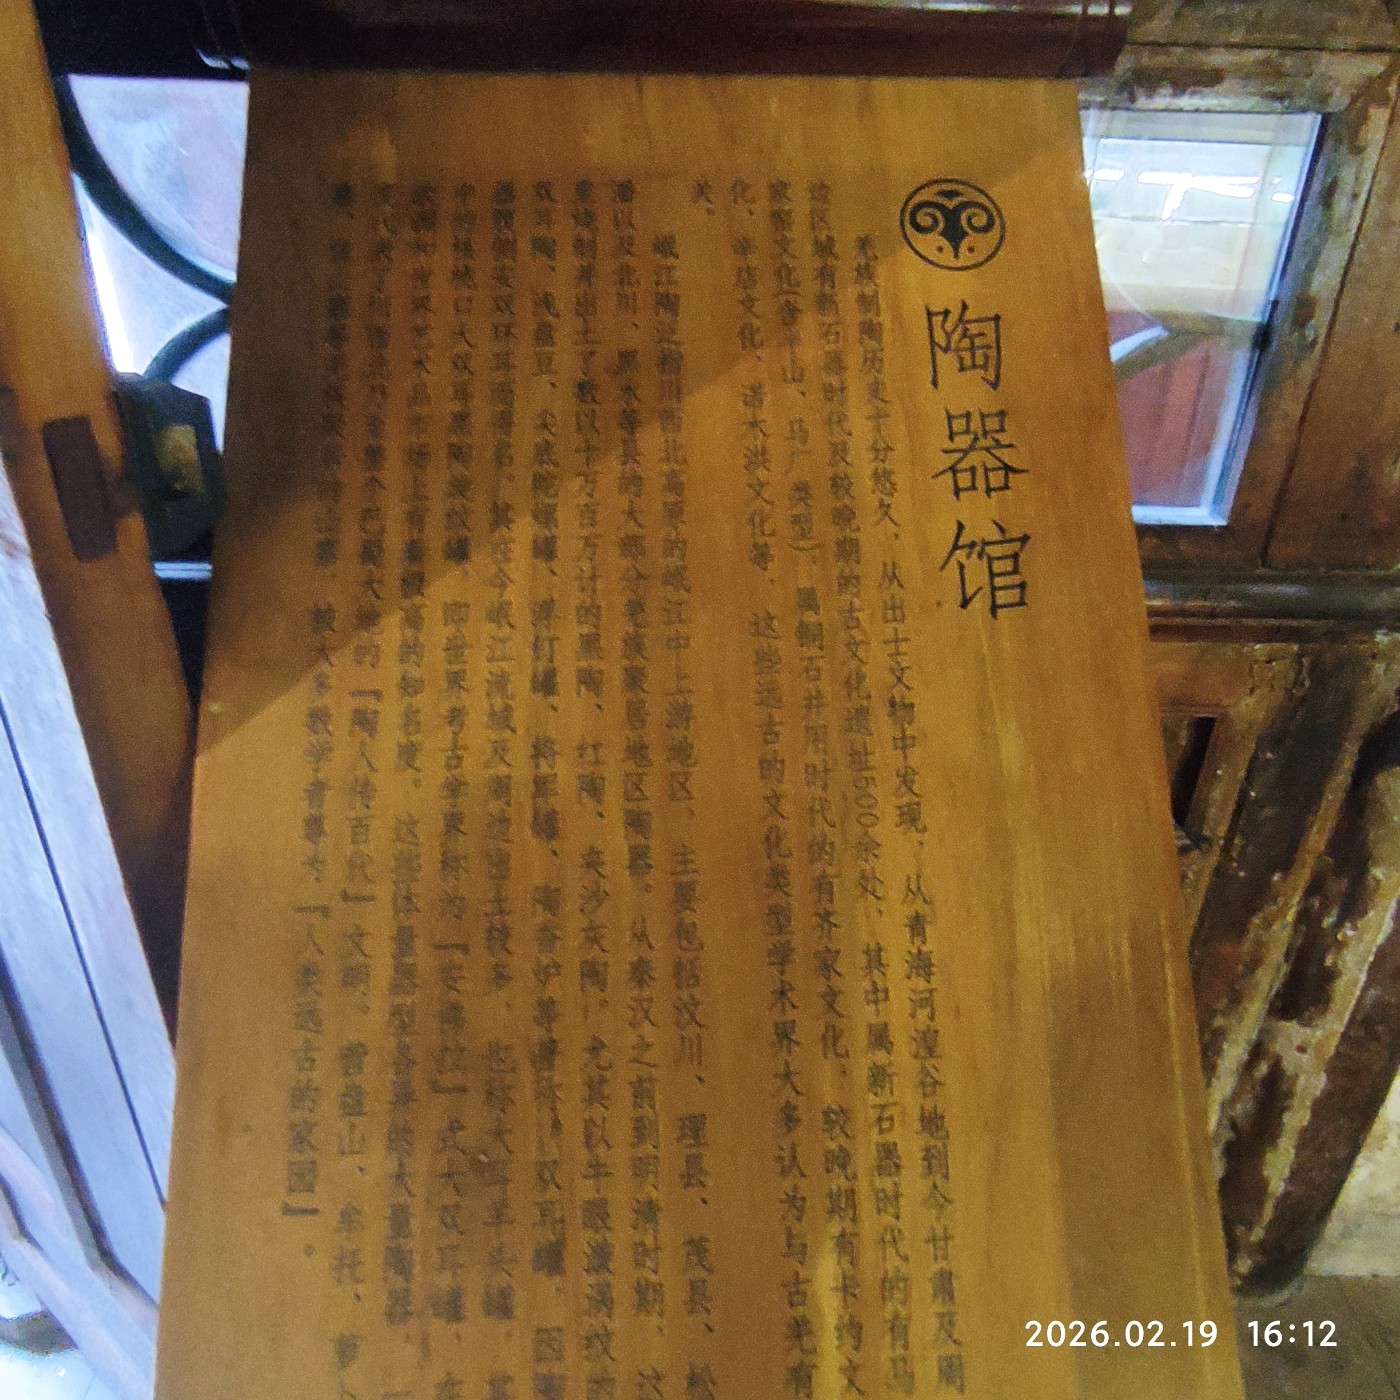 陶器馆
羌族制陶历史十分悠久，从出土文物中发现，从青海河湟谷地到今甘肃及周
边区域有新石器时代及较晚期的古文化遗址500余处，其中属新石器时代的有马
家窑文化(含半山、马厂类型)，属铜石并用时代的有齐家文化，较晚期有卡约文
化、辛店文化、诺木洪文化等，这些远古的文化类型学术界大多认为与古羌有
关。
岷江陶泛指川西北高原的岷江中上游地区，主要包括汶川、理县、茂县、松
潘以及北川、黑水等县的大部分羌族聚居地区陶器。从秦汉之前到明清时期，这
里烧制并出土了数以十万百万计的黑陶、红陶、夹沙灰陶。尤其以牛眼漩涡纹的
双耳陶、浅盘豆、尖底陀螺罐、浮钉罐、将军罐、陶香炉等著称。双耳罐，因陶
器颈侧安双环耳而得名。其在今岷江流域及周边出土较多，也称大耳羊头罐，其
中的核桃口大双耳黑陶旋纹罐，即世界考古学界称为『安佛拉』式大双耳罐，在
欧洲古世界艺术品市场上有着很高的知名度。这些体量器型各异的大量陶器，
的『陶人传百代』文明。营盘山、牟托、萝卜
被大多数学者尊为『人类远古的家园』。
2026.02.19 16:12